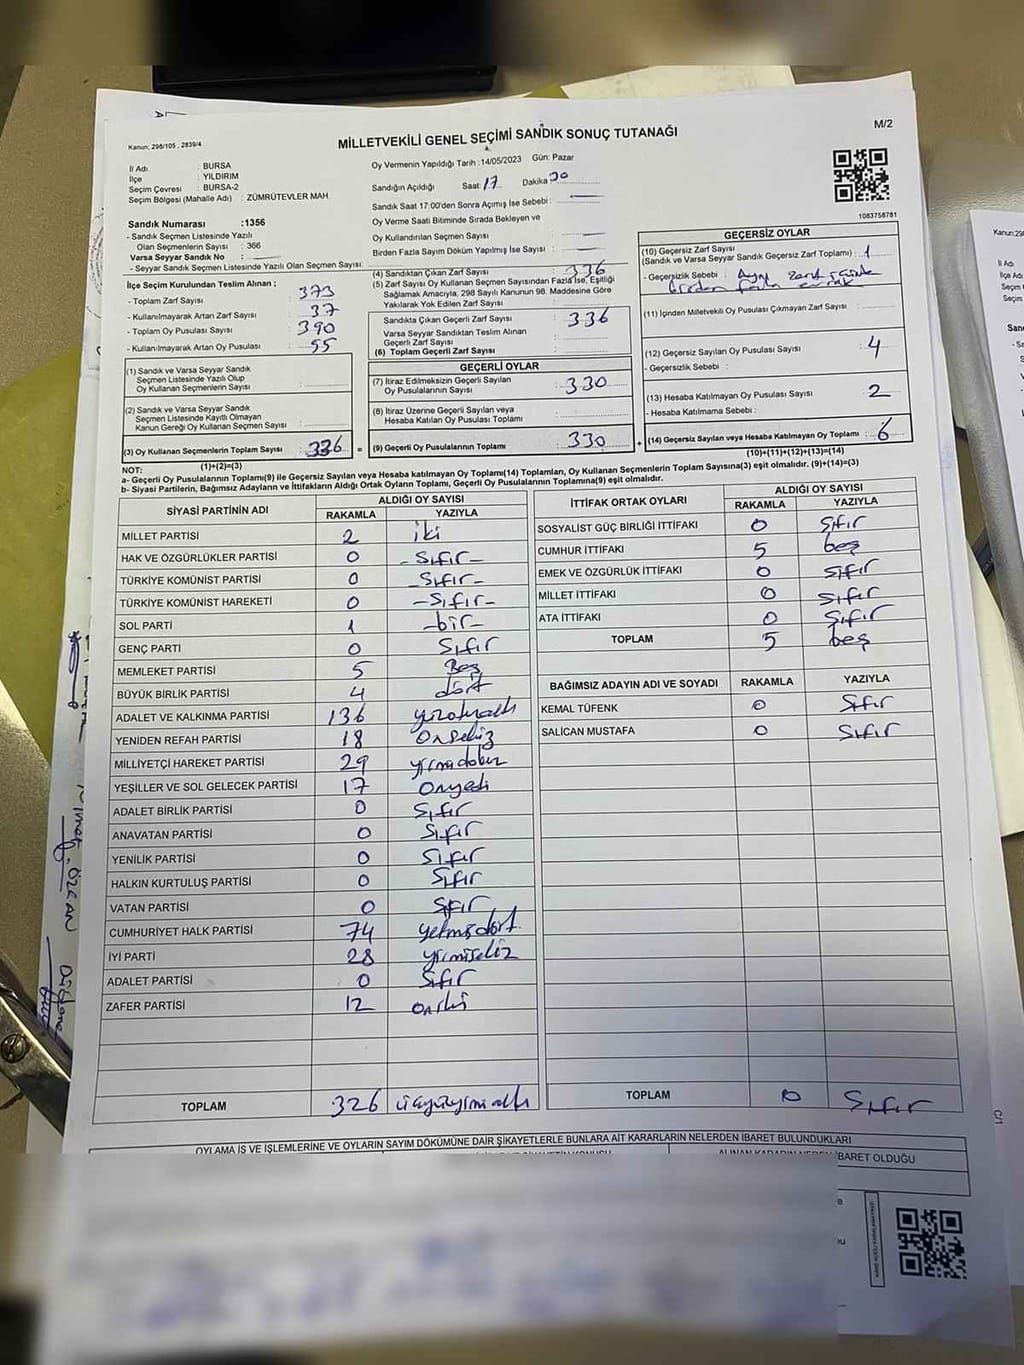 M/2
Kanun: 298/105 , 2839/4
MİLLETVEKİLİ GENEL SEÇİMİ SANDIK SONUÇ TUTANAĞI
İl Adı : BURSA
İlçe : YILDIRIM
Seçim Çevresi : BURSA-2
Seçim Bölgesi (Mahalle Adı) : ZÜMRÜTEVLER MAH
Sandık Numarası :1356
- Sandık Seçmen Listesinde Yazılı
Olan Seçmenlerin Sayısı : 366
Varsa Seyyar Sandık No :
- Seyyar Sandık Seçmen Listesinde Yazılı Olan Seçmen Sayısı:
İlçe Seçim Kurulundan Teslim Alınan :
- Toplam Zarf Sayısı : 373
- Kullanılmayarak Artan Zarf Sayısı : 37
- Toplam Oy Pusulası Sayısı : 390
- Kullanılmayarak Artan Oy Pusulası : 55
(1) Sandık ve Varsa Seyyar Sandık
Seçmen Listesinde Yazılı Olup
Oy Kullanan Seçmenlerin Sayısı :
(2) Sandık ve Varsa Seyyar Sandık
Seçmen Listesinde Kayıtlı Olmayan
Kanun Gereği Oy Kullanan Seçmen Sayısı :
(3) Oy Kullanan Seçmenlerin Toplam Sayısı : 336
(1)+(2)=(3)
Oy Vermenin Yapıldığı Tarih :14/05/2023 Gün: Pazar
Sandığın Açıldığı Saat: 17 Dakika 30
Sandık Saat 17:00'den Sonra Açılmış İse Sebebi :
Oy Verme Saati Bitiminde Sırada Bekleyen ve
Oy Kullandırılan Seçmen Sayısı :
Birden Fazla Sayım Döküm Yapılmış İse Sayısı :
(4) Sandıktan Çıkan Zarf Sayısı : 336
(5) Zarf Sayısı Oy Kullanan Seçmen Sayısından Fazla İse, Eşitliği
Sağlamak Amacıyla, 298 Sayılı Kanunun 98. Maddesine Göre
Yakılarak Yok Edilen Zarf Sayısı :
Sandıkta Çıkan Geçerli Zarf Sayısı : 336
Varsa Seyyar Sandıktan Teslim Alınan
Geçerli Zarf Sayısı :
(6) Toplam Geçerli Zarf Sayısı :
GEÇERLİ OYLAR
(7) İtiraz Edilmeksizin Geçerli Sayılan
Oy Pusulalarının Sayısı : 330
(8) İtiraz Üzerine Geçerli Sayılan veya
Hesaba Katılan Oy Pusulası Toplamı :
= (9) Geçerli Oy Pusulalarının Toplamı : 330
1083758781
GEÇERSİZ OYLAR
(10) Geçersiz Zarf Sayısı
(Sandık ve Varsa Seyyar Sandık Geçersiz Zarf Toplamı) : 1
- Geçersizlik Sebebi : Aynı zarf içinde
birden fazla evrak
(11) İçinden Milletvekili Oy Pusulası Çıkmayan Zarf Sayısı :
(12) Geçersiz Sayılan Oy Pusulası Sayısı : 4
- Geçersizlik Sebebi :
(13) Hesaba Katılmayan Oy Pusulası Sayısı : 2
- Hesaba Katılmama Sebebi :
+ (14) Geçersiz Sayılan veya Hesaba Katılmayan Oy Toplamı : 6
(10)+(11)+(12)+(13)=(14)
NOT:
a- Geçerli Oy Pusulalarının Toplamı(9) ile Geçersiz Sayılan veya Hesaba katılmayan Oy Toplamı(14) Toplamları, Oy Kullanan Seçmenlerin Toplam Sayısına(3) eşit olmalıdır. (9)+(14)=(3)
b- Siyasi Partilerin, Bağımsız Adayların ve İttifakların Aldığı Ortak Oyların Toplamı, Geçerli Oy Pusulalarının Toplamına(9) eşit olmalıdır.
SİYASİ PARTİNİN ADI ALDIĞI OY SAYISI
RAKAMLA YAZIYLA
MİLLET PARTİSİ 2 iki
HAK VE ÖZGÜRLÜKLER PARTİSİ 0 -Sıfır-
TÜRKİYE KOMÜNİST PARTİSİ 0 -Sıfır-
TÜRKİYE KOMÜNİST HAREKETİ 0 -Sıfır-
SOL PARTİ 1 -bir-
GENÇ PARTİ 0 Sıfır
MEMLEKET PARTİSİ 5 Beş
BÜYÜK BİRLİK PARTİSİ 4 dört
ADALET VE KALKINMA PARTİSİ 136 yüzotuzaltı
YENİDEN REFAH PARTİSİ 18 Onsekiz
MİLLİYETÇİ HAREKET PARTİSİ 29 yirmidokuz
YEŞİLLER VE SOL GELECEK PARTİSİ 17 Onyedi
ADALET BİRLİK PARTİSİ 0 Sıfır
ANAVATAN PARTİSİ 0 Sıfır
YENİLİK PARTİSİ 0 Sıfır
HALKIN KURTULUŞ PARTİSİ 0 Sıfır
VATAN PARTİSİ 0 Sıfır
CUMHURİYET HALK PARTİSİ 74 yetmişdört
İYİ PARTİ 28 yirmisekiz
ADALET PARTİSİ 0 Sıfır
ZAFER PARTİSİ 12 oniki
TOPLAM 326 üçyüzyirmialtı
İTTİFAK ORTAK OYLARI ALDIĞI OY SAYISI
RAKAMLA YAZIYLA
SOSYALİST GÜÇ BİRLİĞİ İTTİFAKI 0 Sıfır
CUMHUR İTTİFAKI 5 beş
EMEK VE ÖZGÜRLÜK İTTİFAKI 0 Sıfır
MİLLET İTTİFAKI 0 Sıfır
ATA İTTİFAKI 0 Sıfır
TOPLAM 5 beş
BAĞIMSIZ ADAYIN ADI VE SOYADI RAKAMLA YAZIYLA
KEMAL TÜFENK 0 Sıfır
SALİCAN MUSTAFA 0 Sıfır
TOPLAM 0 Sıfır
OYLAMA İŞ VE İŞLEMLERİNE VE OYLARIN SAYIM DÖKÜMÜNE DAİR ŞİKAYETLERLE BUNLARA AİT KARARLARIN NELERDEN İBARET BULUNDUKLARI
İBARET OLDUĞU
ÖZCAN
Kanun:298
İl Adı
İlçe
Seçim
Seçim